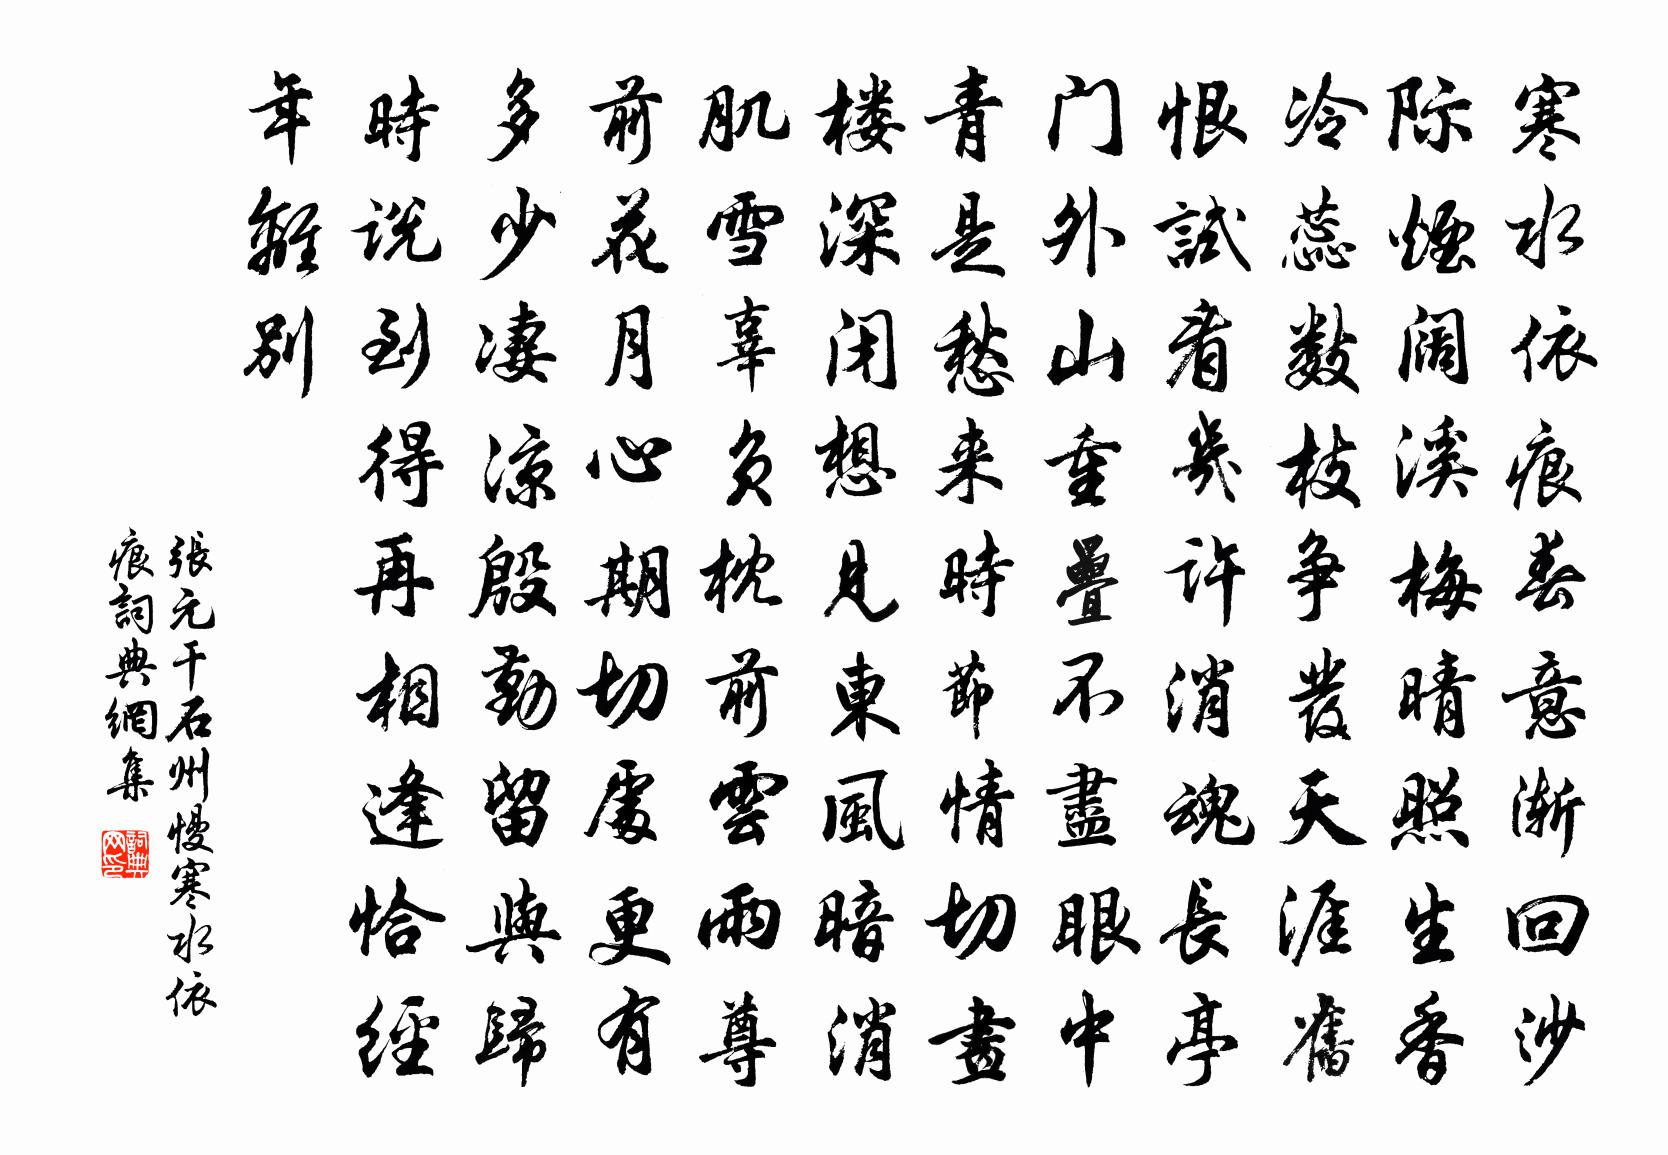 寒水依痕春意渐回沙
际煙阔溪梅晴照生香
冷蕊數枝争發天涯舊
恨試看幾許消魂長亭
门外山重疊不盡眼中
青是愁来時節情切畫
楼深闭想見東風暗消
肌雪辜负枕前雲雨尊
前花月心期切處更有
多少凄涼殷勤留與歸
時说到得再相逢恰经
年離别
張元干石州慢寒水依
痕詞典網集
詞典
网印